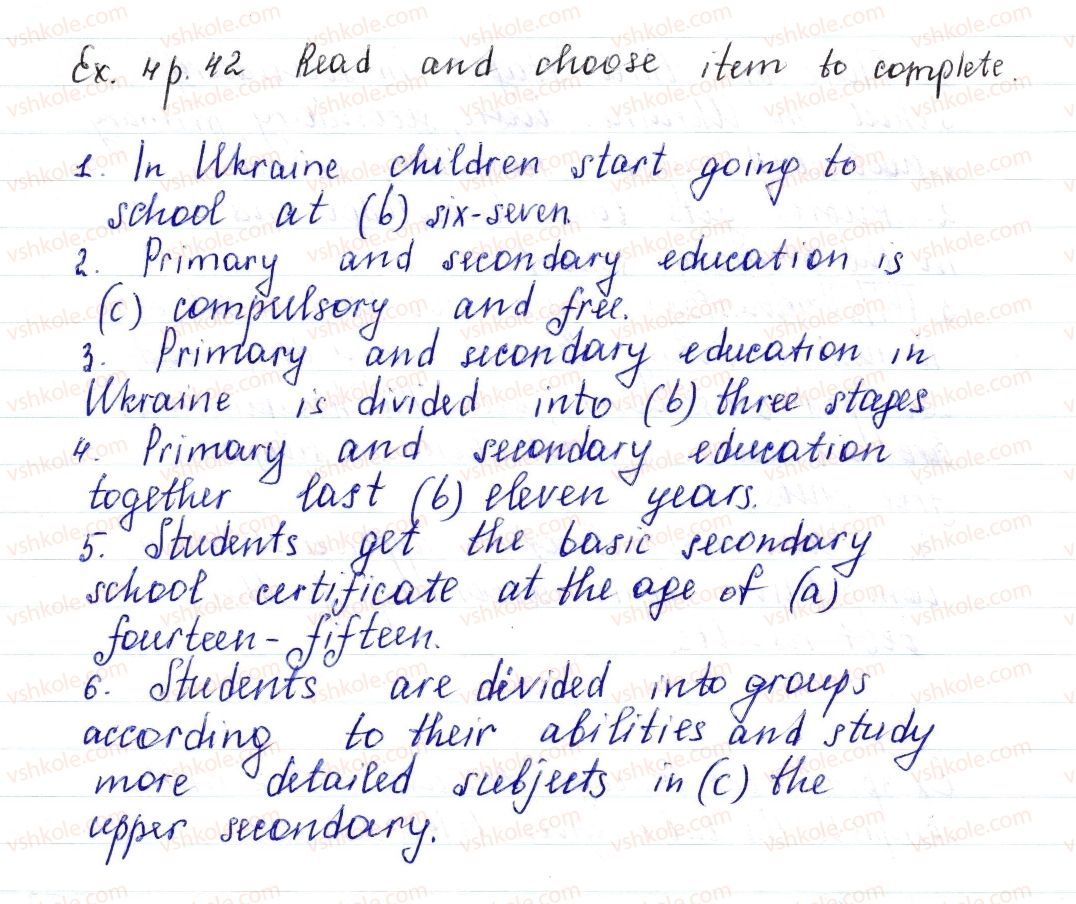 Ex. 4 p. 42 Read and choose item to complete.
1. In Ukraine children start going to
school at (b) six-seven.
2. Primary and secondary education is
(c) compulsory and free.
3. Primary and secondary education in
Ukraine is divided into (b) three stages
4. Primary and secondary education
together last (b) eleven years.
5. Students get the basic secondary
school certificate at the age of (a)
fourteen-fifteen.
6. Students are divided into groups
according to their abilities and study
more detailed subjects in (c) the
upper secondary.